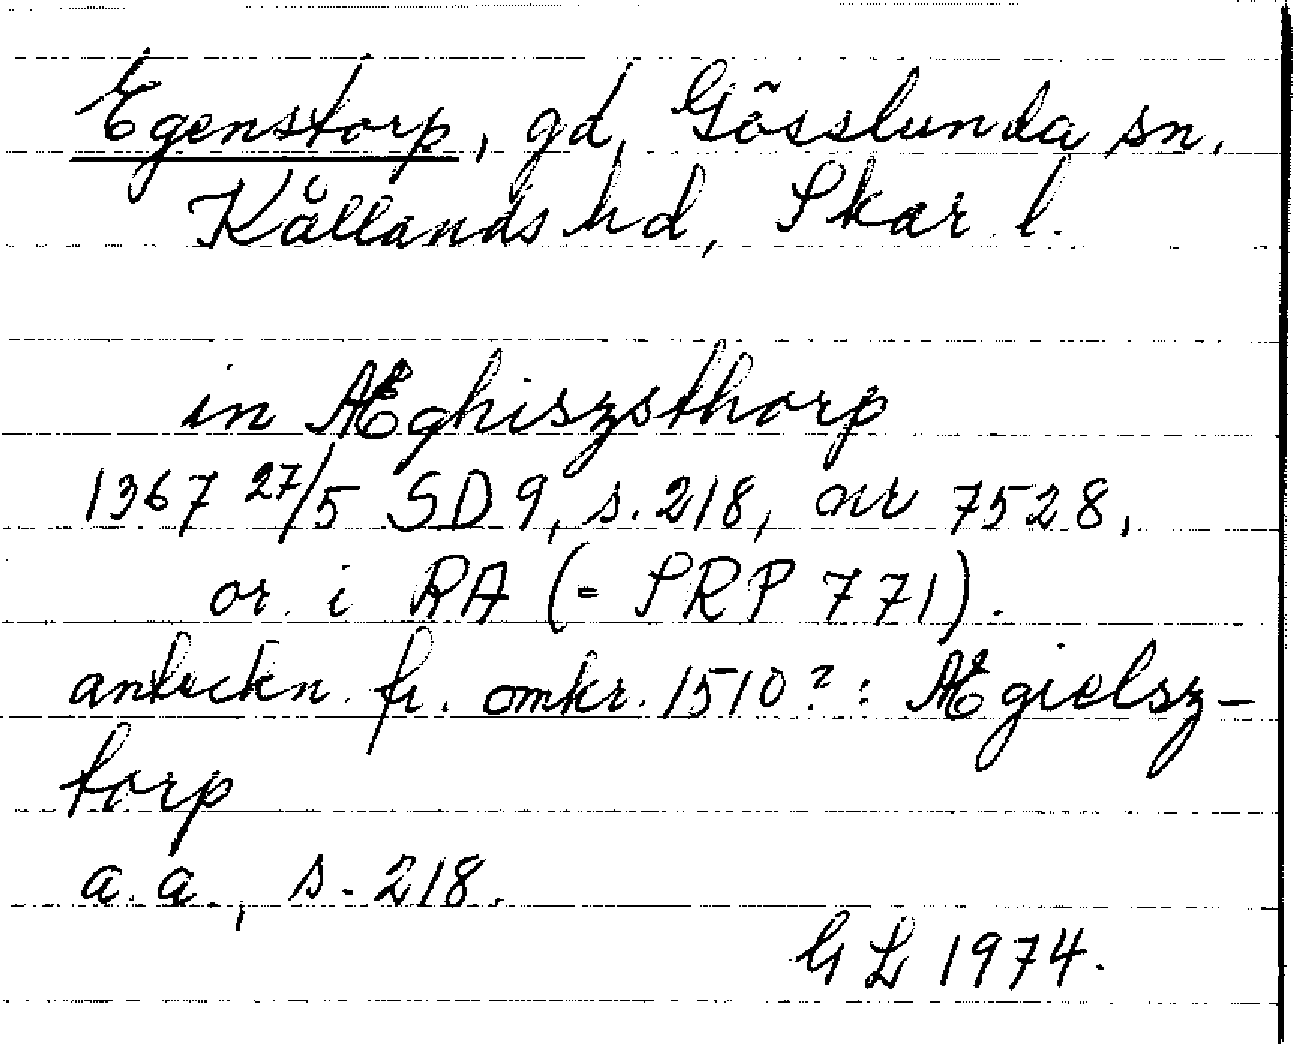 Egenstorp, gd, Gösslunda sn,
Kållands hd, Skar. l.
in Æghiszsthorp
1367 27/5 SD 9, s. 218, nr 7528,
or. i RA (= SRP 771).
anteckn. fr. omkr. 1510?: Ægielsz-
torp
a.a., s. 218.
GL 1974.